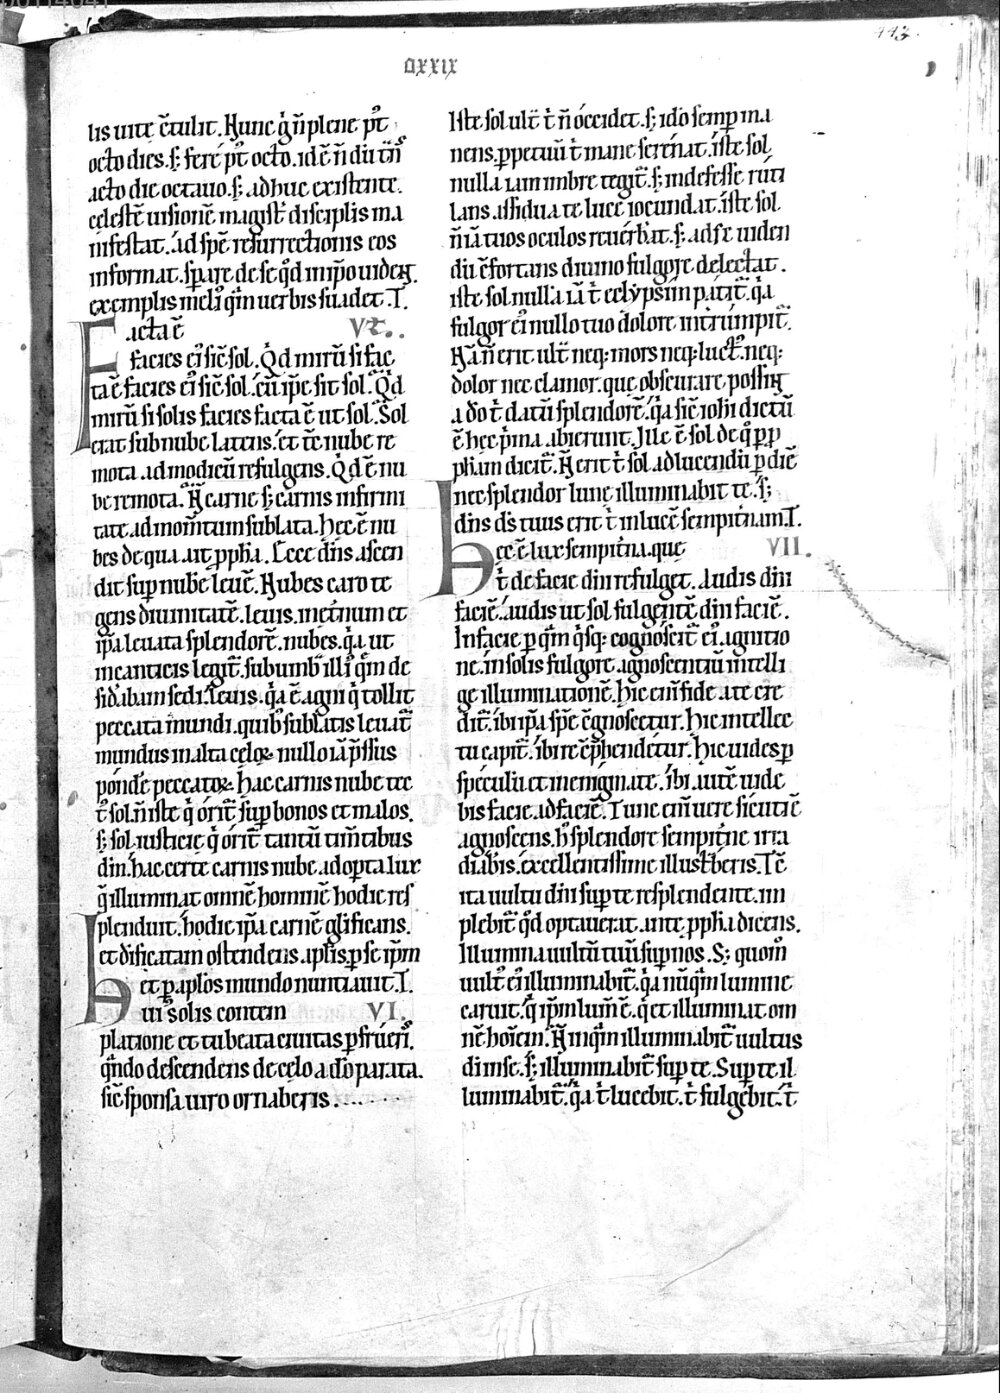 113.
CXXIX
lis uite c̄tulit. Hunc g̊ n̄ plene pt᷒
octo dies. s; fere pt᷒ octo. id ē n̄ dū tn̄
acto die octauo. s; adhuc existente.
celestē uisionē magist᷑ disciplis ma
nifestat. ad spē resurrectionis eos
informat.
exemplis meli᷒ qm̄ uerbis suadet. T.
Facta ē VI..
facies ei᷒ sic̄ sol. Qd mirū si fac
ta ē facies ei᷒ sic̄ sol. cū ip̄e sit sol. Qd
mirū si solis facies facta ē ut sol. Sol
erat sub nube latens. et tc̄ nube re
mota. ad modicū refulgens. Qd ē nu
be remota. N̄ carne s; carnis infirmi
tate. ad mom̄tum sublata. hec ē nu
bes de qua. ait ppha. Ecce dn̄s ascen
dit sup nubē leuē. Nubes caro te
gens diuinitatē. leuis. in et̄num et
ip̄a leuata splendorē. nubes. q̄a ut
in canticis legit᷑. sub umb᷑ illi᷒ qm̄ de
sid᷑abam sedi. leuis. q̄a ē agn᷒ q̄ tollit
peccata mundi. quib᷒ sublatis leuat᷑
mundus in alta celoꝝ nullo iā p̄ssus
pond᷑e peccatoꝝ. hac carnis nube tec
t᷒ sol. n̄ iste q̄ orit᷑ sup bonos et malos.
s; sol iusticie q̄ orit᷑ tantū tim̄tibus
dm̄. hac certe carnis nube adopta lux
q̄ illuminat omnē hominē hodie res
plenduit. hodie ip̄a carnē glificans.
et dificatam ostendens. aplis p se ip̄m
et p aplos mundo nuntiauit. T.
Hui᷒ solis contem VI.
platione et tu beata ciuitas pfrueri᷒.
qn̄do descendens de celo a do parata.
sic̄ sponsa uiro ornaberis.
Iste sol ult᷑ t᷑ n̄ occidet. s; ido semp ma
nens. ppetuū t᷑ mane serenat. iste sol
nulla iam imbre tegit᷑. s; indefesse ruti
lans. assidua te luce iocundat. iste sol
n̄ iā tuos oculos reuerb᷑at. s; ad se uiden
dū c̄fortans diuino fulgore delectat.
iste sol nulla iā t᷑ eclypsim patit᷑. q̄a
fulgor ei᷒ nullo tuo dolore int᷑rumpit᷑.
Nā n̄ erit ult᷑ neq; mors neq; luct᷒. neq;
dolor nec clamor. que obscurare possint
a do t᷑ datū splendorē. q̄a sic̄ iohi dictū
ē hec p̄ma abierunt. Ille ē sol de q̊ p p
phiam dicit᷑. N̄ erit t᷑ sol ad lucendū p diē
nec splendor lune illuminabit te. s;
dn̄s ds̄ tuus erit t᷑ in lucē sempit᷑nam. T.
Hec ē lux sempit᷑na. que VII.
t᷑ de facie dm̄ refulget. Audis dm̄
faciē. audis ut sol fulgentē dm̄ faciē.
In facie p qm̄ q̄sq; cognoscit᷑ ei᷒ agnitio
nē. in solis fulgore. agnoscentiū intelli
ge illuminationē. hic eni fide a te cre
dit᷑. ibi ip̄a spē c̄gnoscetur. hic intellec
tu capit᷑. ibi te c̄p̄hendetur. hic uides p
speculū et in enigmate. ibi. aūtē uide
bis facie ad faciē. Tunc eni uere sic̄ uti ē
agnoscens. h᷒ splendore sempit᷑ne irra
diabis. excellentissime illust᷑beris. Tc̄
ita uultu dm̄ sup te resplendente. im
plebit᷑ qd optauerat. ante ppha dicens.
Illumina uultū tuū sup nos. S; quom᷒
uult᷒ ei᷒ illuminabit᷑. q̄a nūqm̄ lumine
caruit. q̄ ip̄m lum̄ ē. q̄ et illuminat om
nē hoiem. N̄ inqm̄ illuminabit᷑ uultus
di in se. s; illuminabit᷑ sup te. Sup te il
luminabit᷑. q̄a t᷑ lucebit. t᷑ fulgebit. t᷑